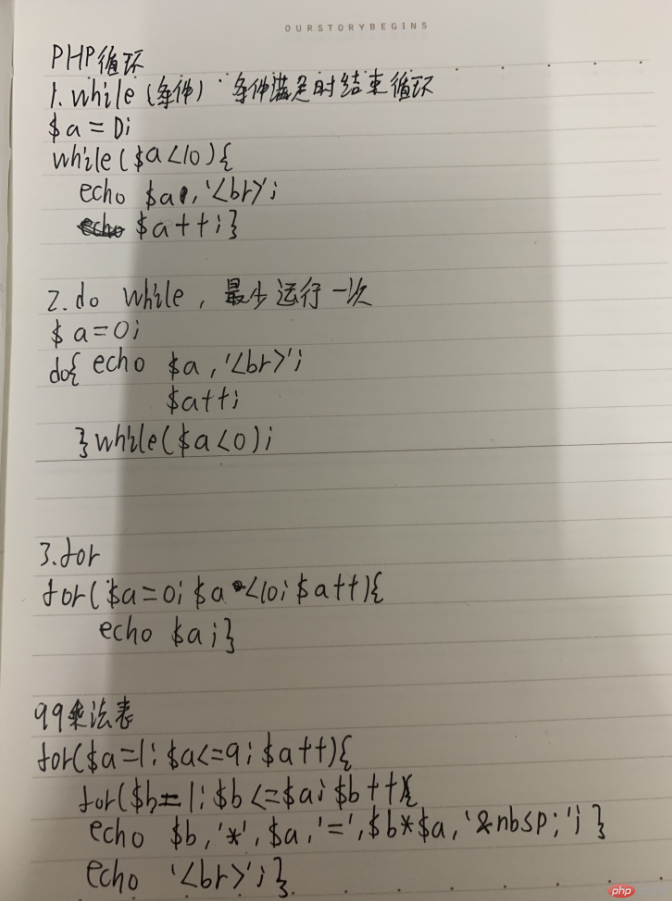 OURSTORYBEGINS
PHP循环
1. while (条件) 条件满足时结束循环
$a = 0;
while($a<10){
echo $a,'<br>';
$a++;}
2. do while, 最少运行一次
$a=0;
do{ echo $a,'<br>';
$a++;
}while($a<0);
3. for
for($a=0; $a<10; $a++){
echo $a;}
99乘法表
for($a=1; $a<=9; $a++){
for($b=1; $b<=$a; $b++){
echo $b,'*',$a,'=',$b*$a,'&nbsp;';}
echo '<br>';}
php